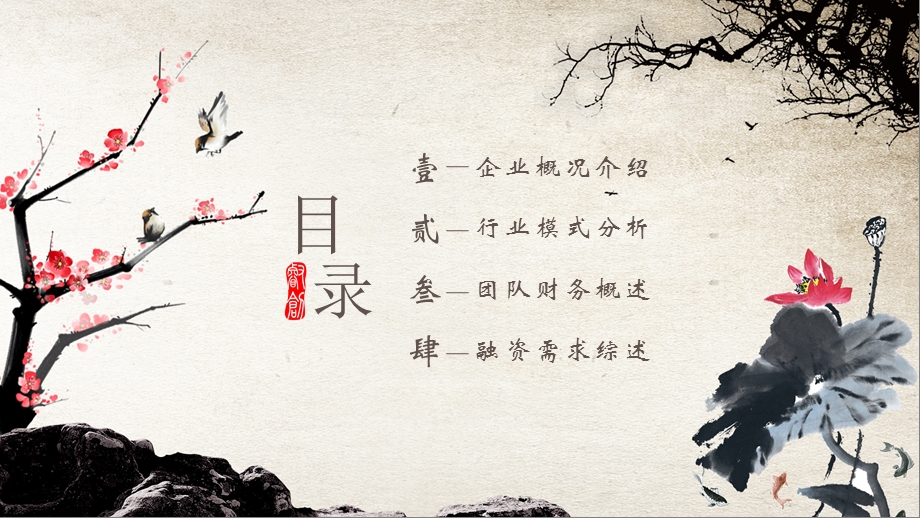 目录
睿創
壹—企业概况介绍
贰—行业模式分析
叁—团队财务概述
肆—融资需求综述